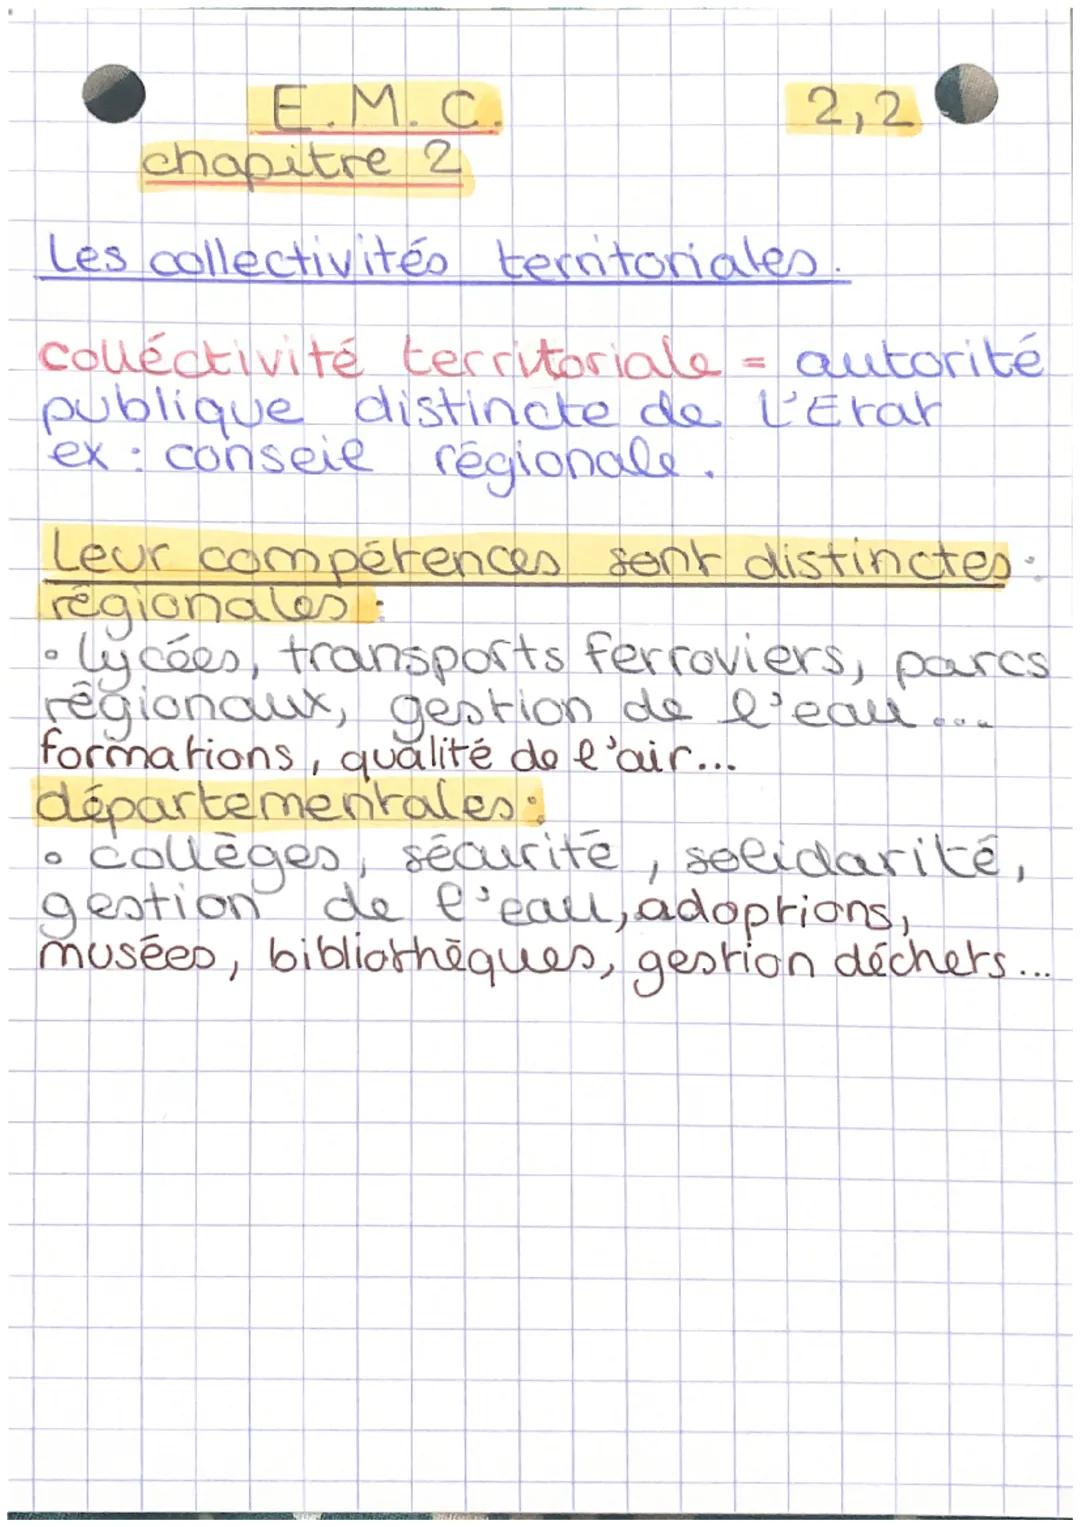 E.M.C. 2,2
chapitre 2
Les collectivités territoriales.
colléctivité territoriale = autorité
publique distincte de l'Etat
ex : conseil régionale.
Leur compétences sont distinctes :
régionales :
• lycées, transports ferroviers, parcs
régionaux, gestion de l'eau...
formations, qualité de l'air...
départementales :
• collèges, sécurité, solidarité,
gestion de l'eau, adoptions,
musées, bibliothèques, gestion déchets...